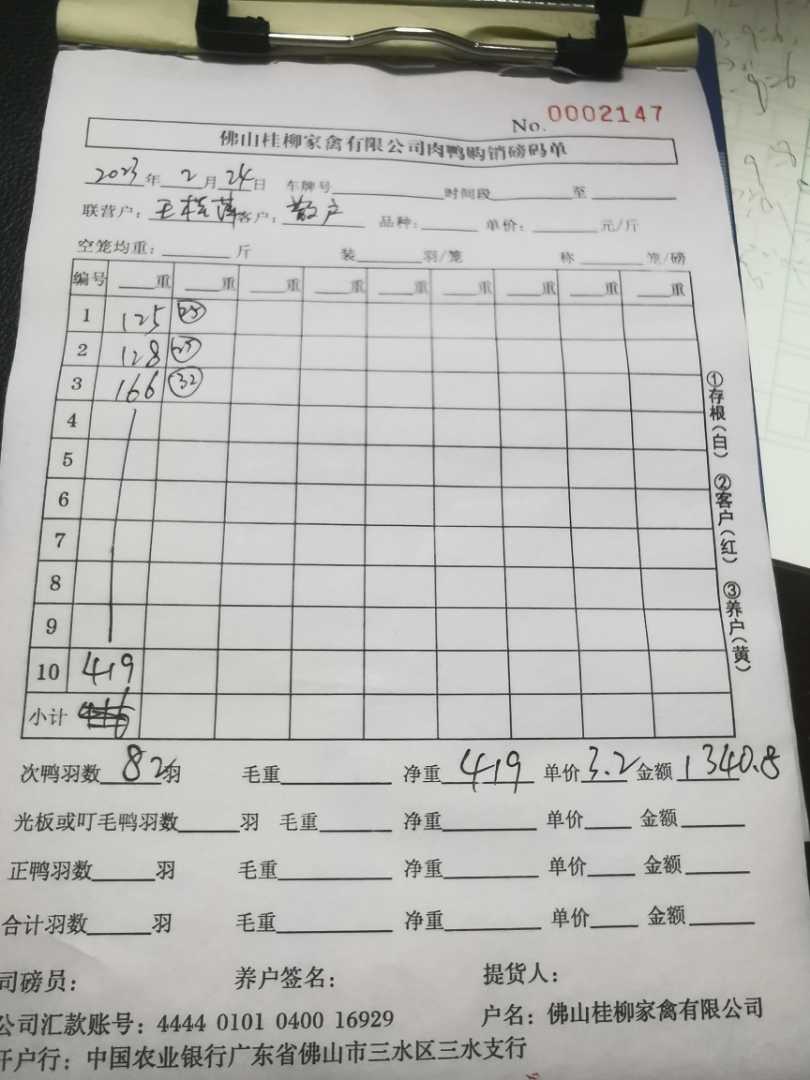 No. 0002147
佛山桂柳家禽有限公司肉鸭购销磅码单
2023年2月24日 车牌号 时间段 至
联营户：王桂萍 客户：散户 品种： 单价： 元/斤
空笼均重： 斤 装 羽/笼 称 笼/磅
编号 重 重 重 重 重 重 重 重 重
1 125 25
2 128 25
3 166 32
4
5
6
7
8
9
10 419
小计
次鸭羽数82羽 毛重 净重419 单价3.2 金额1340.8
光板或叮毛鸭羽数 羽 毛重 净重 单价 金额
正鸭羽数 羽 毛重 净重 单价 金额
合计羽数 羽 毛重 净重 单价 金额
司磅员： 养户签名： 提货人：
公司汇款账号：4444 0101 0400 16929 户名：佛山桂柳家禽有限公司
开户行：中国农业银行广东省佛山市三水区三水支行
①存根（白） ②客户（红） ③养户（黄）